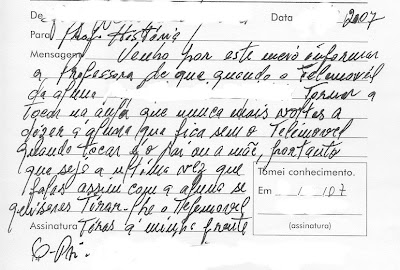 De Data 2007
Para Prof. História /
Mensagem Venho por este meio informar
a professora de que quando o Telemovel
da aluna Tornar a
tocar na aula que nunca mais voltes a
dizer a aluna que fica sem o Telemovel
quando tocar do pai ou a mãe, portanto
que seja a ultima vez que
falas assim com a aluna se
quiseres Tirar-lhe o Telemovel
Tiras á minha frente
O Pai.
Tomei conhecimento.
Em / 1 / 07
Assinatura
(assinatura)